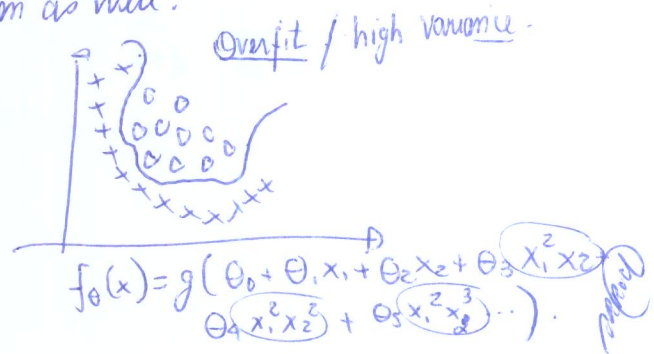 m as well.
Overfit / high variance.
f_θ(x) = g(θ₀ + θ₁x₁ + θ₂x₂ + θ₃ x₁²x₂ +
θ₄ x₁²x₂² + θ₅ x₁²x₂³ ...).